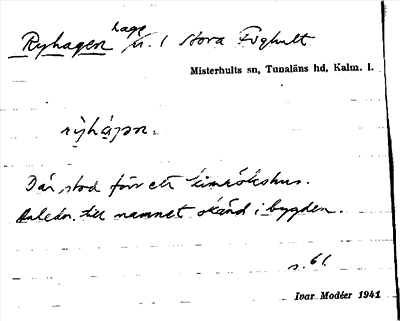 hage
Ryhagen u. 1 Stora Fighult
Misterhults sn, Tunaläns hd, Kalm. l.
rỳhágən.
Där stod förr ett kimrökshus.
Anledn. till namnet okänd i bygden.
s. 61.
Ivar Modéer 1941